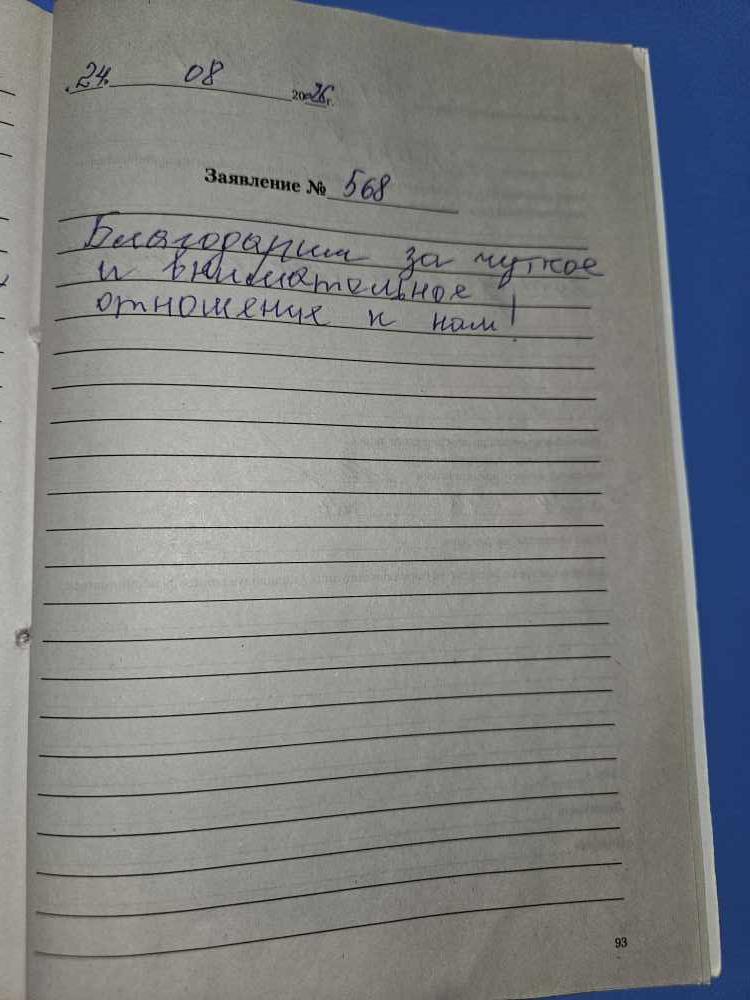 24. 08 2026 г.
Заявление № 568
Благодарим за чуткое
и внимательное
отношение к нам!
93